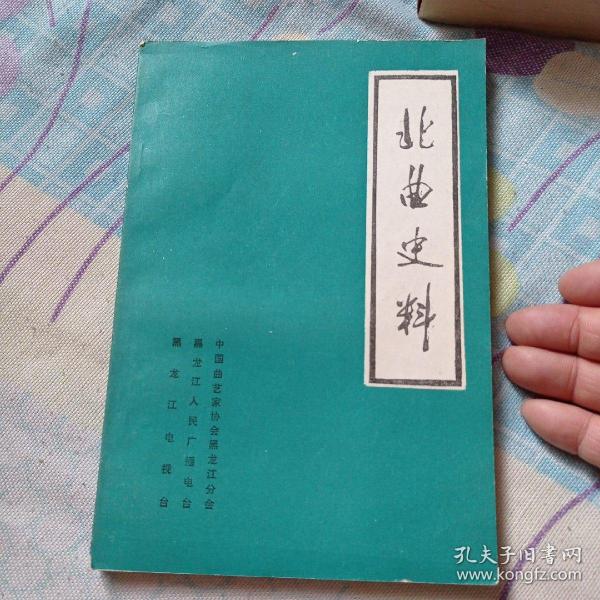 北曲史料
中国曲艺家协会黑龙江分会
黑龙江人民广播电台
黑龙江电视台
孔夫子旧书网
www.kongfz.com